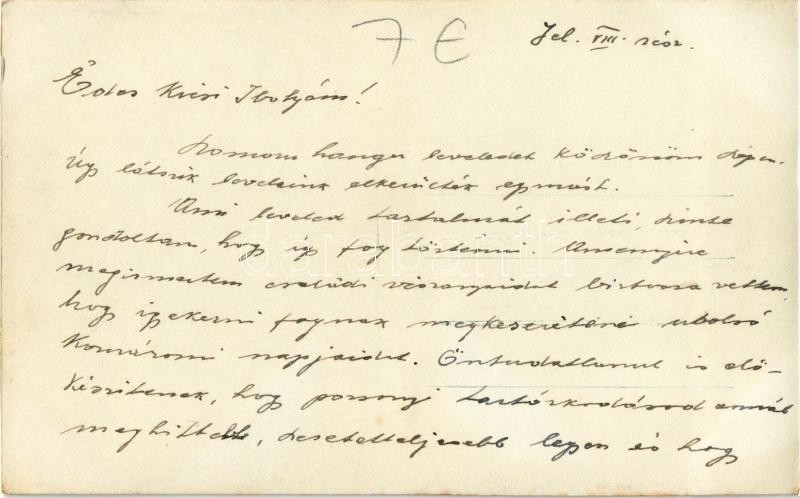 7 €
Jel. VIII.
Édes Kicsi Ibolyám!
hangu leveledet köszönöm szépen.
Úgy látszik leveleink elkerülték egymást.
Ami leveled tartalmát illeti, szinte
gondoltam, hogy így fog történni. Amennyire
megismertem családi viszonyaidat biztosra vettem,
hogy igyekezni fognak megkeseríteni utolsó
Komáromi napjaidat. Öntudatlanul is elő-
készítenek, hogy pozsonyi tartózkodásod annál
meghittebb, szeretetteljesebb legyen és hogy